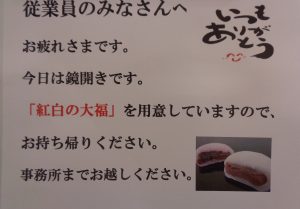 従業員のみなさんへ
いつも
ありがとう
お疲れさまです。
今日は鏡開きです。
「紅白の大福」を用意していますので、
お持ち帰りください。
事務所までお越しください。